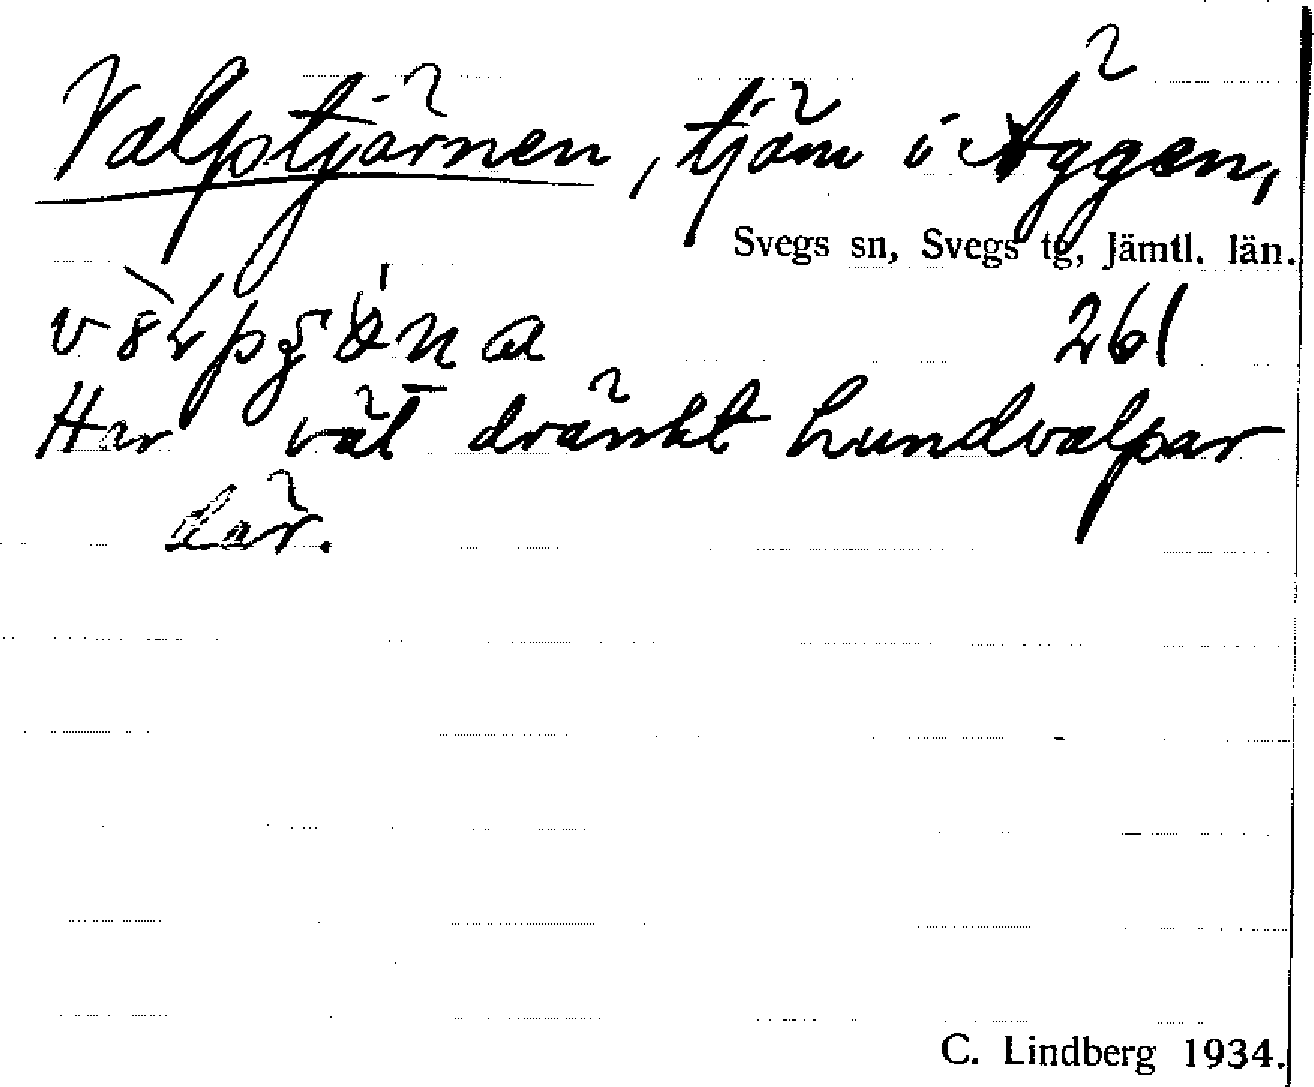 Valptjärnen, tjärn i Äggen,
Svegs sn, Svegs tg, Jämtl. län.
261
Har väl dränkt hundvalpar
där.
C. Lindberg 1934.